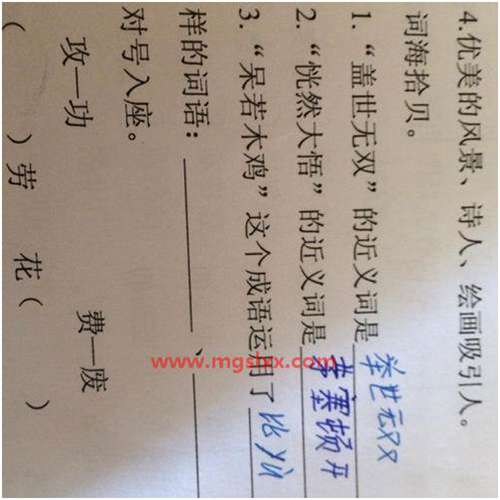 4.优美的风景、诗人、绘画吸引人。
词海拾贝。
1.“盖世无双”的近义词是举世无双
2.“恍然大悟”的近义词是茅塞顿开
3.“呆若木鸡”这个成语运用了比yù
样的词语：、
对号入座。
攻—功 费—废
( )劳 花( )